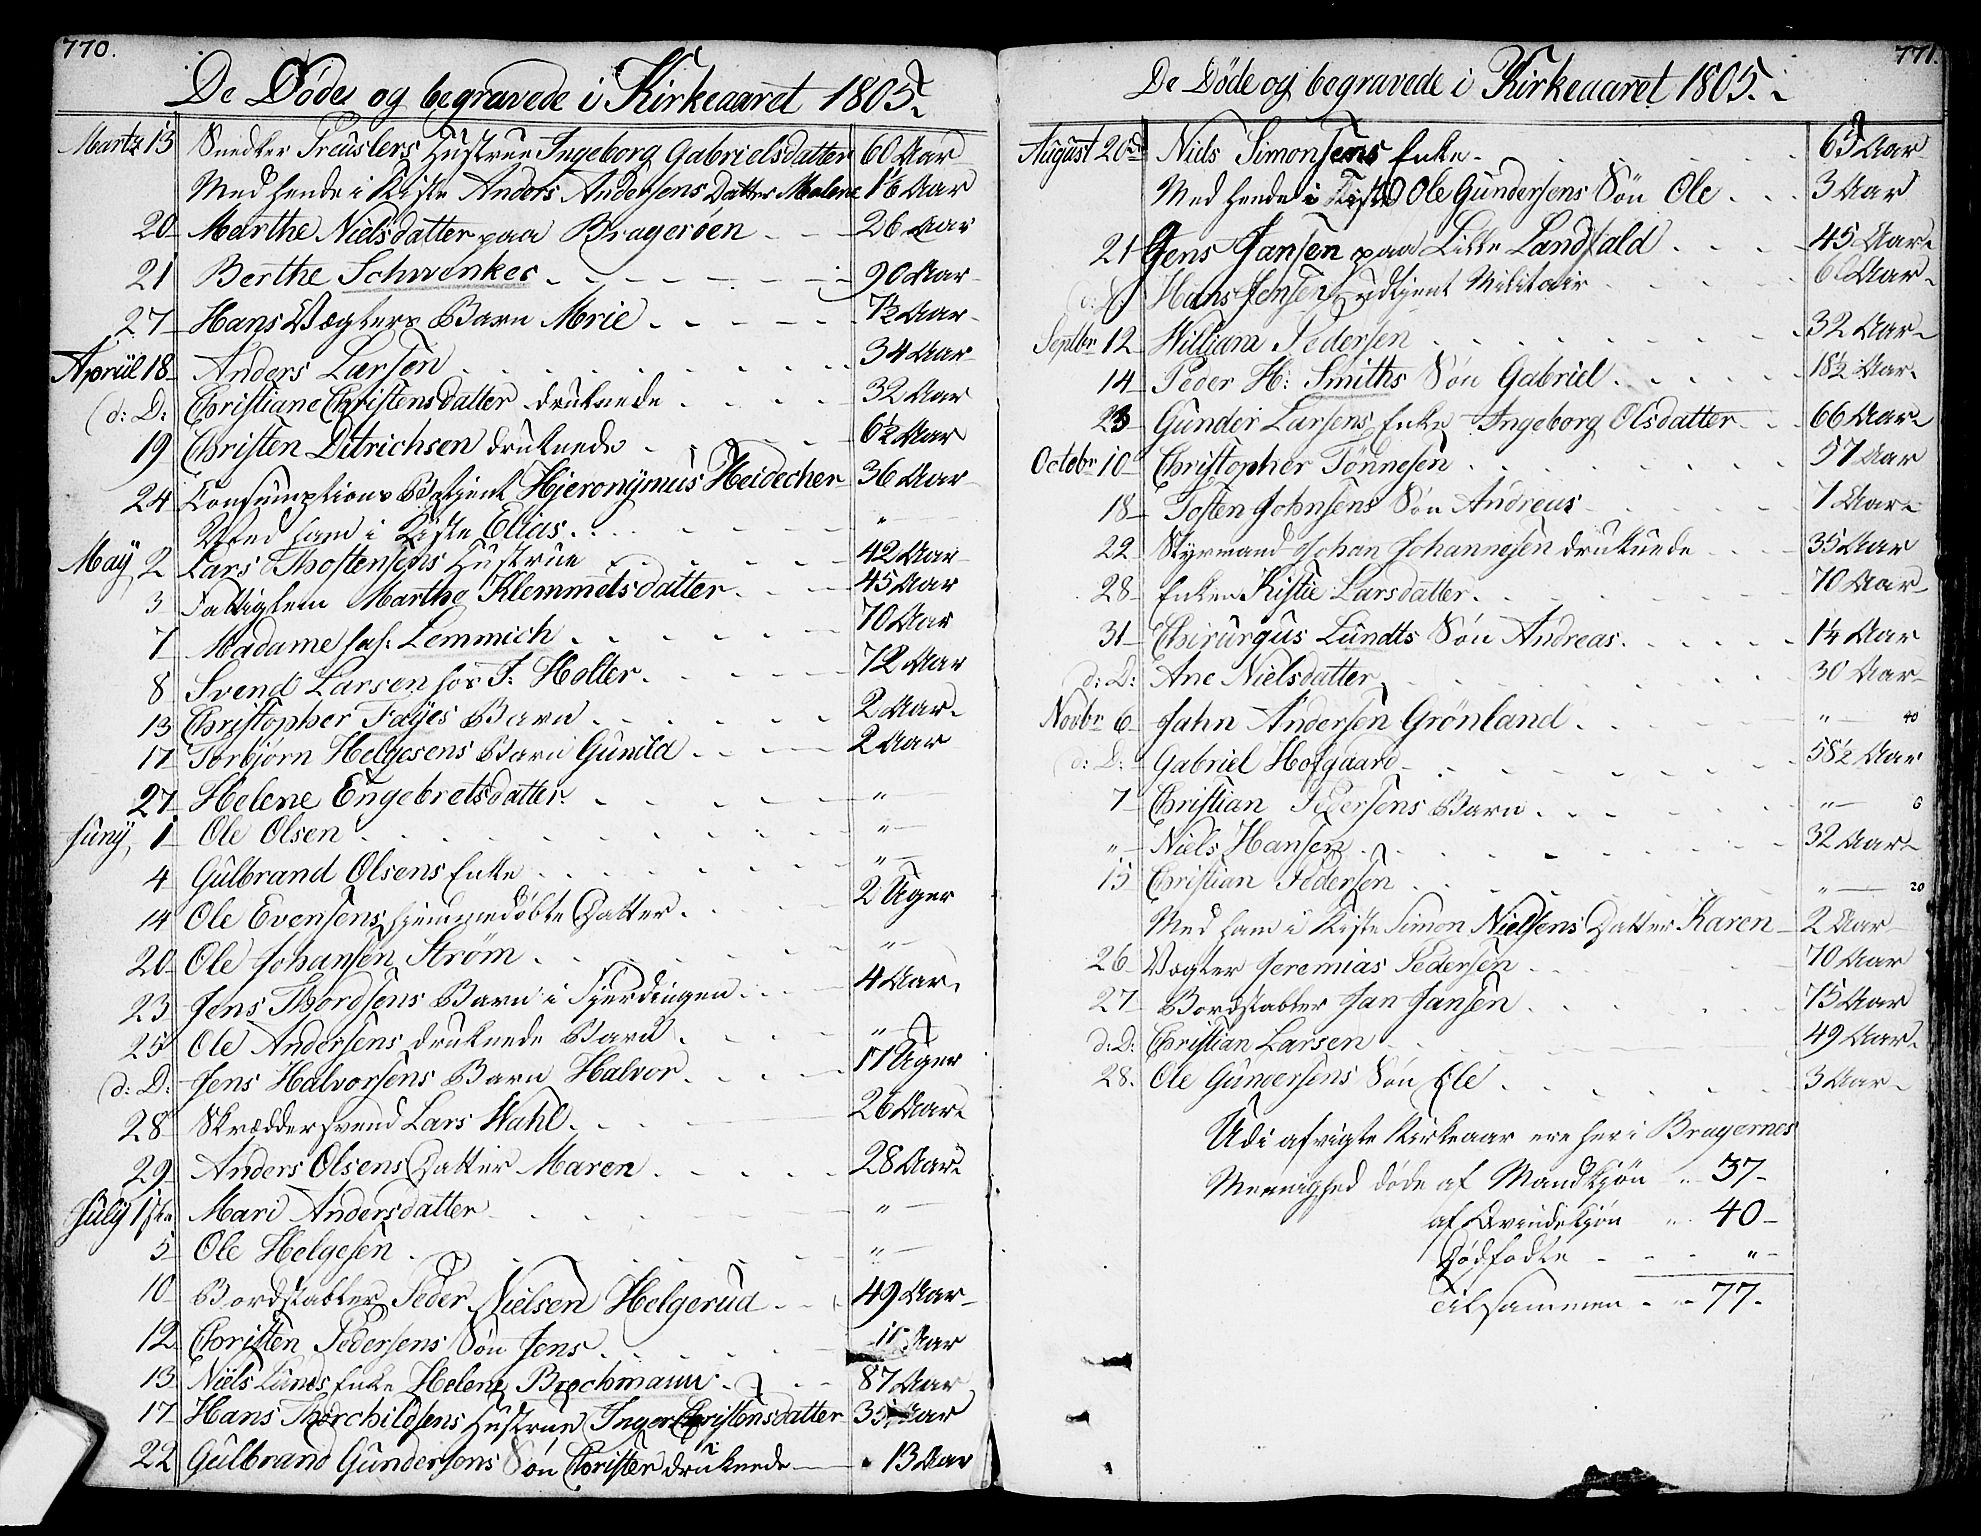 770.
De Döde og begravede i Kirkeaaret 1805.
Martz 13 Snedker Preuslers Hustrue Ingeborg Gabrielsdatter 60 Aar
Med hende i Kiste Anders Andersens Datter Malene 1½ Aar
20 Marthe Nielsdatter paa Bragerøen 26 Aar
21 Berthe Schwenkes 90 Aar
27 Hans Vægters Barn Mrie 7½ Aar
Apriil 18 Anders Larsen 34 Aar
(d: D: Christiane Christensdatter druknede 32 Aar
19 Christen Ditrichsen druknede 6½ Aar
24 Consumptions Betjent Hjeronÿmus Heidecher 36 Aar
Med ham i Kiste Elias "
Maÿ 2 Lars Thostensens Hustrue 42 Aar
3 Fattiglem Marthe Klemmetsdatter 45 Aar
7 Madame sal. Lemmich 70 Aar
8 Svend Larsen hos J. Holter 72 Aar
13 Christopher Faÿes Barn 2 Aar
17 Torbjørn Helgesens Barn Gunild 2 Aar
27 Helene Engebretsdatter "
Junÿ 1 Ole Olsen "
4 Gulbrand Olsens Enke "
14 Ole Evensens hjemmedøbte Datter 2 Uger
20 Ole Johansen Strøm "
23 Jens Thordsens Barn i Fjerdingen 4 Aar
25 Ole Andersens druknede Barn "
(d: D: Jens Halvorsens Barn Halvor 17 Uger
28 Skræddersvend Lars Wahl 26 Aar
29 Anders Olsens Datter Maren 28 Aar
Julÿ 1ste Mari Andersdatter "
5 Ole Helgesen "
10 Bordstabler Peder Nielsen Helgerud 49 Aar
12 Christen Pedersens Søn Jens Aar
13 Niels Lunds Enke Helene Brochmann 87 Aar
17 Hans Thorchildsens Hustrue Inger Christensdatter 35 Aar
22 Gulbrand Gundersens Søn Christen druknede 13 Aar
771.
De Döde og begravede i Kirkeaaret 1805.
August 20de Niels Simonsens Enke 63 Aar
Med hende i Kiste Ole Gundersens Søn Ole 3 Aar
21 Jens Jansen paa Lille Landfald 45 Aar
(d: D: Hans Jensen udtjent Militair 60 Aar
Septbr 12 William Pedersen 32 Aar
14 Peder H: Smiths Søn Gabriel 18½ Aar
23 Gunder Larsens Enke Ingeborg Olsdatter 66 Aar
Octobr 10 Christopher Tönnesen 57 Aar
18 Tosten Johnsens Søn Andreas 7 Aar
22 Styrmand Johan Johannesen druknede 35 Aar
28 Enken Kistie Larsdatter 70 Aar
31 Chirurgus Lundts Søn Andreas 1¼ Aar
d: D: Ane Nielsdatter 30 Aar
Novbr 6 Jahn Andersen Grönland " 40
(d: D: Gabriel Hofgaard 58½ Aar
7 Christian Pedersens Barn " 6
" Niels Hansen 32 Aar
15 Christian Pedersen " 20
Med ham i Kiste Simon Nielsens Datter Karen 2 Aar
26 Vægter Jeremias Pedersen 70 Aar
27 Bordstabler Jan Jansen 75 Aar
d: D: Christian Larsen 49 Aar
28 Ole Gundersens Søn Ole 3 Aar
Udi afvigte Kirkeaar ere her i Bragernes
Menighed døde af Mandkjøn 37
af Qvindekjøn 40
Dødfødte "
Tilsammen 77